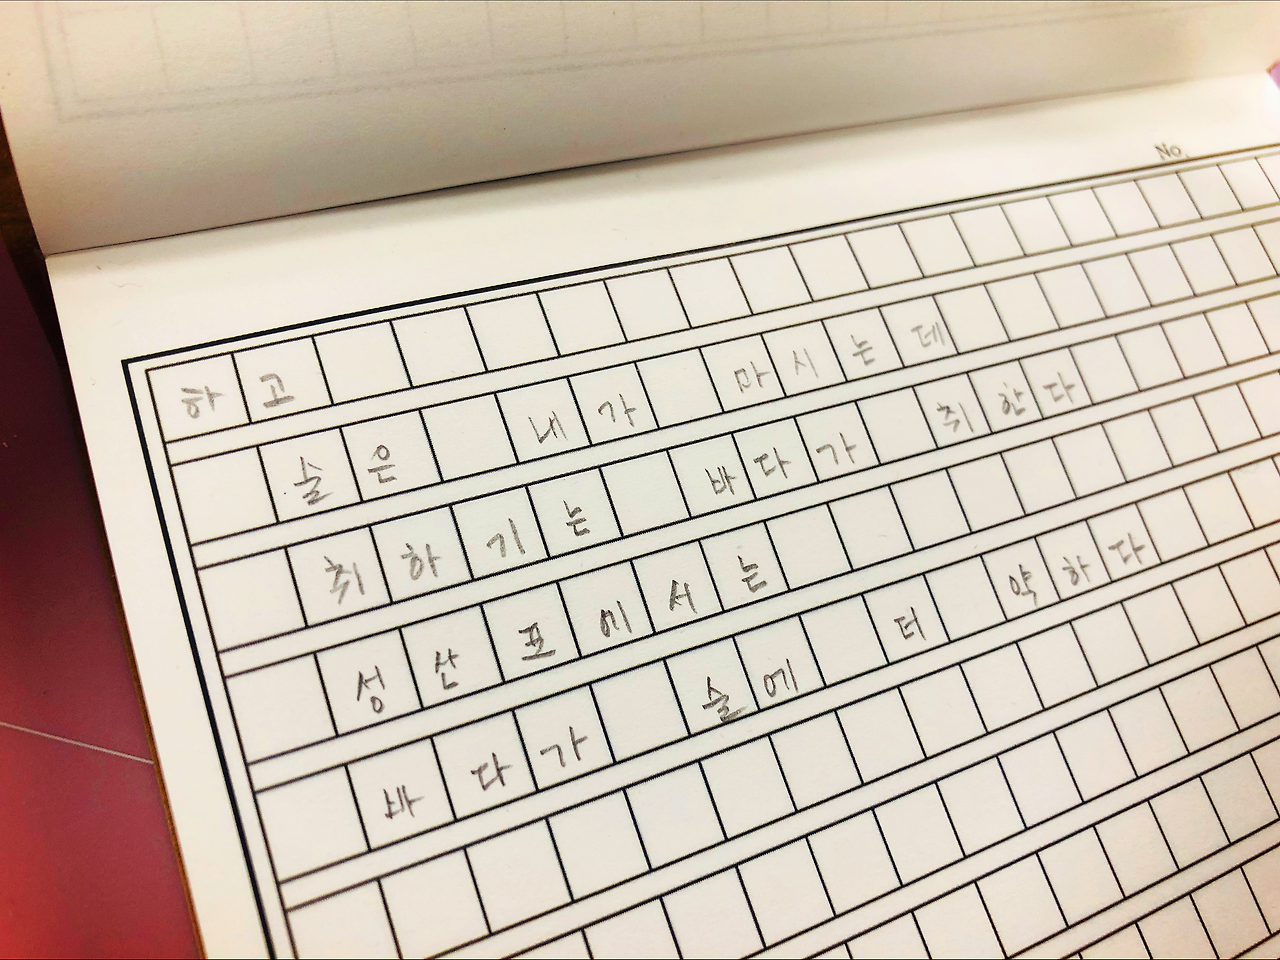 No.
하고
술은 내가 마시는데
취하기는 바다가 취한다
성산포에서는
바다가 술에 더 약하다